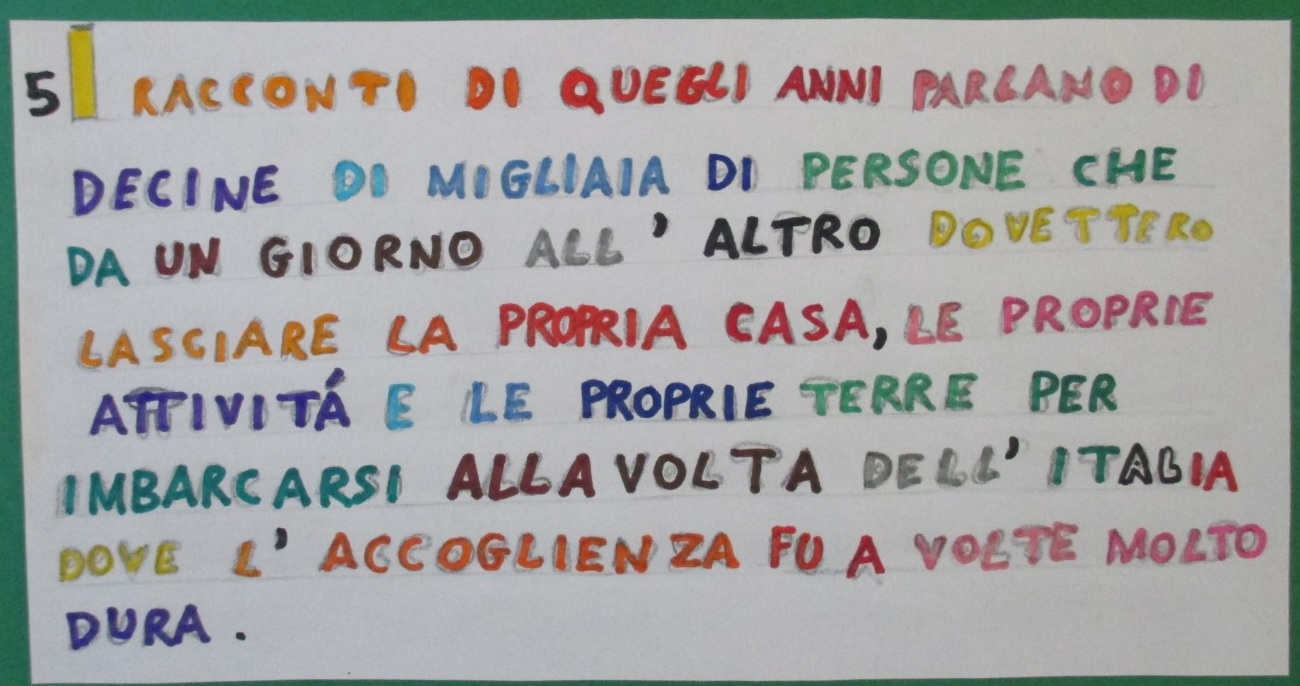 5 I RACCONTI DI QUEGLI ANNI PARLANO DI
DECINE DI MIGLIAIA DI PERSONE CHE
DA UN GIORNO ALL' ALTRO DOVETTERO
LASCIARE LA PROPRIA CASA, LE PROPRIE
ATTIVITÁ E LE PROPRIE TERRE PER
IMBARCARSI ALLA VOLTA DELL' ITALIA
DOVE L' ACCOGLIENZA FU A VOLTE MOLTO
DURA .